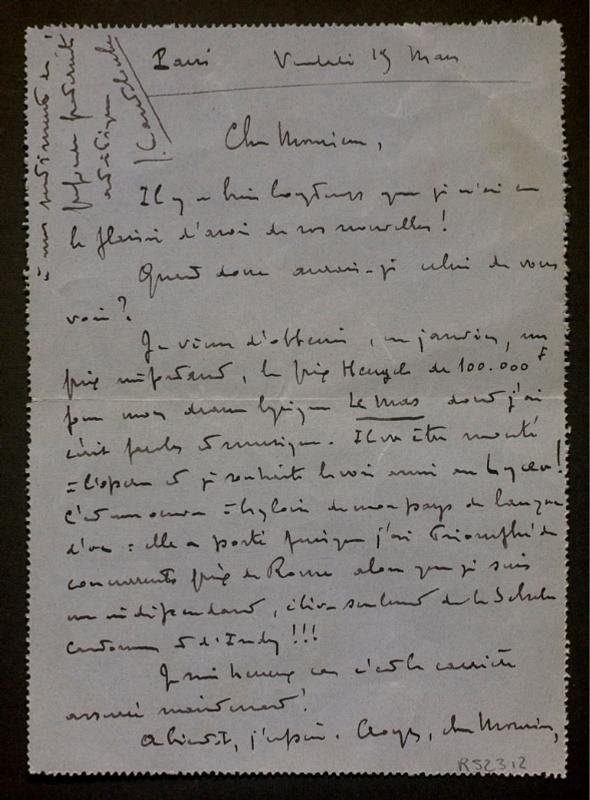 Paris Vendredi 15 Mars
Cher Monsieur,
Il y a bien longtemps que je n'ai eu
le plaisir d'avoir de vos nouvelles !
Quand donc aurais-je celui de vous
voir ?
Je viens d'obtenir, en janvier, un
prix important, le prix Heugel de 100.000 F
pour mon drame lyrique Le Mas dont j'ai
écrit paroles et musique. Il va être monté
à l'opéra et je souhaite le voir aussi au Lyceu !
C'est une œuvre à la gloire de mon pays de langue
d'oc : elle a porté puisque j'ai triomphé de
concurrents prix de Rome alors que je suis
un indépendant, élève seulement de la Schola
Cantorum et d'Indy !!!
Je suis heureux car c'est la carrière
assurée maintenant !
A bientôt, j'espère. Croyez, cher Monsieur,
à mes sentiments de
profonde
artistique
J. Canteloube
RS2312